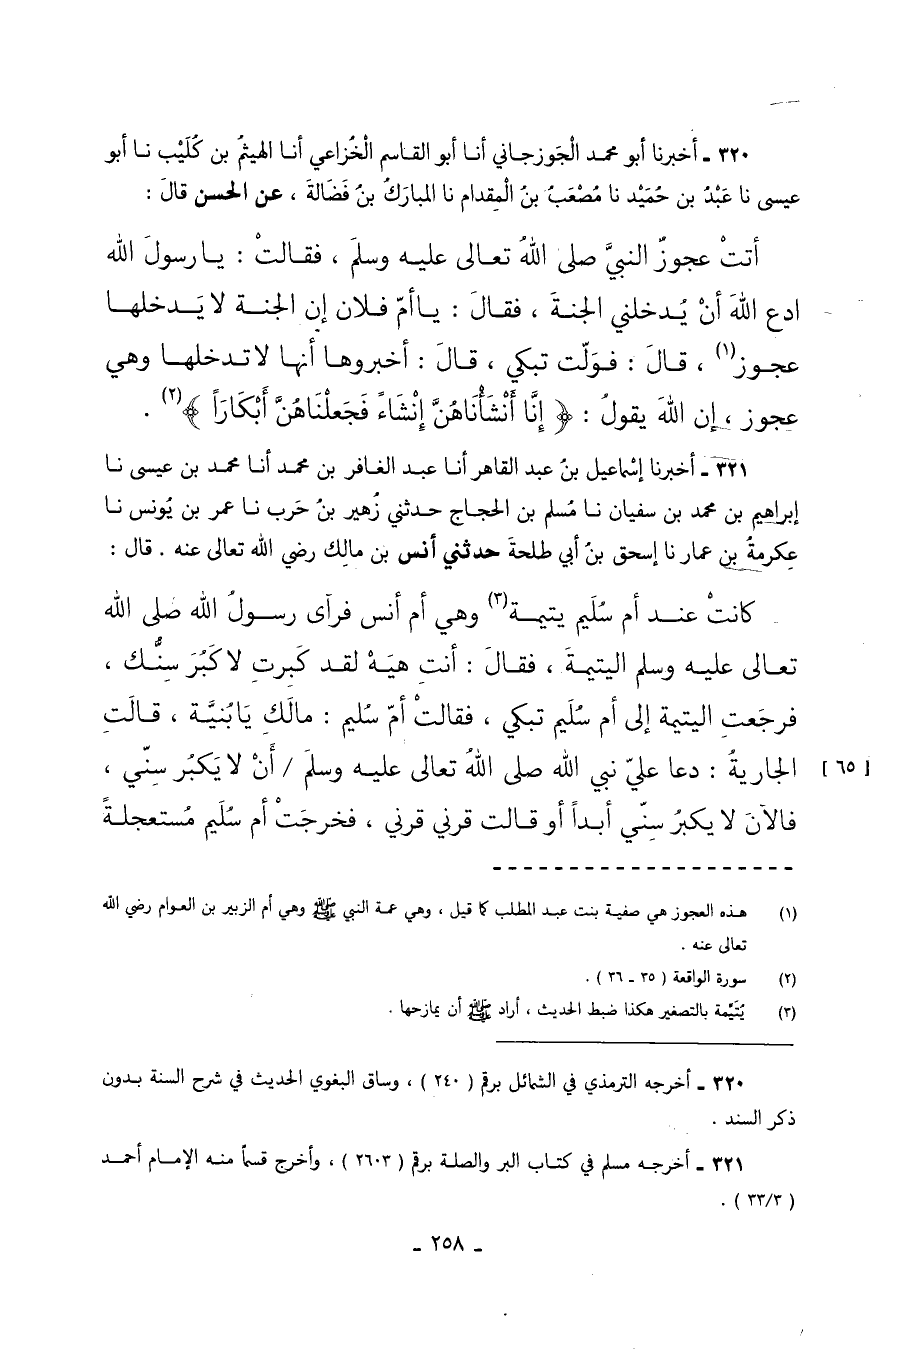 ٣٢٠ ـ أخبرنا أبو محمد الْجَوزجاني أنـا أبو القـاسم الْخُزاعي أنـا الهيثمُ بن كُلَيْب نـا أبو
عيسى نا عَبْدُ بن حُمَيْد نا مُصْعَبُ بنُ الْمِقدام نا المبارَكُ بنُ فَضَالةَ ، عن الحسن قالَ :
أتتْ عجوزٌ النبيَّ صلى اللهُ تعـالى عليـه وسلمَ ، فقـالتْ : يـارسولَ الله
ادع اللهَ أنْ يُـدخلني الجنةَ ، فقـالَ : يـاأمّ فـلان إن الجنـة لا يَـدخلهـا
عجـوز(١) ، قـالَ : فـوَلّت تبكي ، قـالَ : أخبروهـا أنهـا لاتدخلهـا وهي
عجوز ، إن اللهَ يقولُ : ﴿ إِنَّا أَنْشَأْنَاهُنَّ إِنْشَاءً فَجَعَلْنَاهُنَّ أَبْكَاراً ﴾(٢) .
٣٢١ ـ أخبرنا إسماعيل بنُ عبد القاهر أنـا عبد الغـافر بن محمـد أنـا محمـد بن عيسى نـا
إبراهيم بن محمد بن سفيان نـا مُسلم بن الحجاج حـدثني زُهير بنُ حَرب نـا عمر بن يُونس نـا
عكرمةُ بن عمار نا إسحق بنُ أبي طلحةَ حدثني أنس بن مالك رضي الله تعالى عنه . قال :
كانتْ عنـد أم سُلَيم يتيمـة(٣) وهي أم أنس فرآى رسـولُ الله صلى الله
تعـالى عليـه وسلم اليتيمـةَ ، فقـالَ : أنتِ هيَـهْ لقـد كَبرتِ لا كَبُرَ سِنُّـك ،
فرجَعتِ اليتيمة إلى أم سُلَيم تبكي ، فقالتْ أمّ سُليم : مالَكِ يَابُنيَّة ، قـالَتِ
الجاريةُ : دعا عليّ نبي الله صلى اللهُ تعالى عليـه وسلمَ / أَنْ لا يَكبُر سِنّي ، [ ٦٥ ]
فالآنَ لا يكبرُ سِنّي أبـداً أو قـالت قرني قرني ، فخرجَتْ أم سُلَيم مُستعجلـةً
(١) هـذه العجوز هي صفيـة بنت عبـد المطلب كما قيل ، وهي عمـة النبي ﷺ وهي أم الزبير بن العـوام رضي الله
تعالى عنه .
(٢) سورة الواقعة ( ٣٥ ـ ٣٦ ) .
(٣) يُتَيِّمة بالتصغير هكذا ضبط الحديث ، أراد ﷺ أن يمازحها .
٣٢٠ ـ أخرجه الترمذي في الشمائل برقم ( ٢٤٠ ) ، وساق البغوي الحديث في شرح السنة بـدون
ذكر السند .
٣٢١ ـ أخرجـه مسلم في كتـاب البر والصلـة برقم ( ٢٦٠٣ ) ، وأخرج قسماً منـه الإمـام أحمـد
( ٣٣/٣ ) .
ـ ٢٥٨ ـ